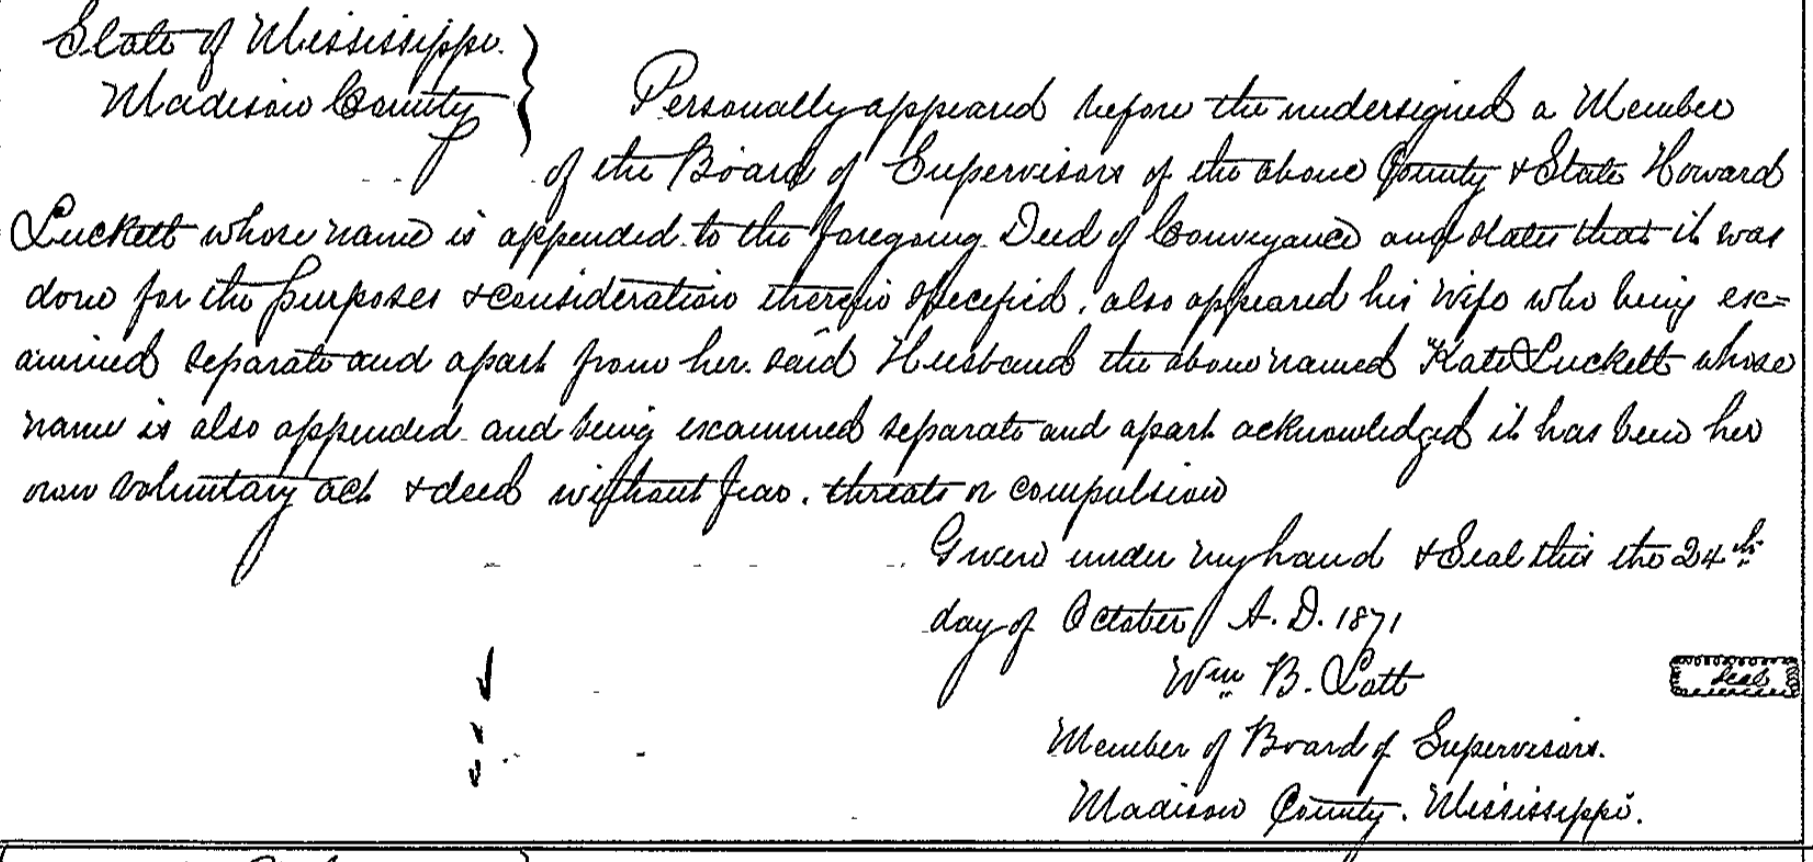 State of Mississippi.
Madison County } Personally appeared before the undersigned a Member
of the Board of Supervisors of the above County & State Howard
Luckett whose name is appended to the foregoing Deed of Conveyance and states that it was
done for the purposes & consideration therein specified, also appeared his wife who being ex=
amined separate and apart from her said Husband the above named Kate Luckett whose
name is also appended and being examined separate and apart acknowledged it has been her
own voluntary act & deed without fear, threats or compulsion
Given under my hand & Seal this the 24th
day of October A.D. 1871
Wm B. Lott
Seal
Member of Board of Supervisors.
Madison County. Mississippi.